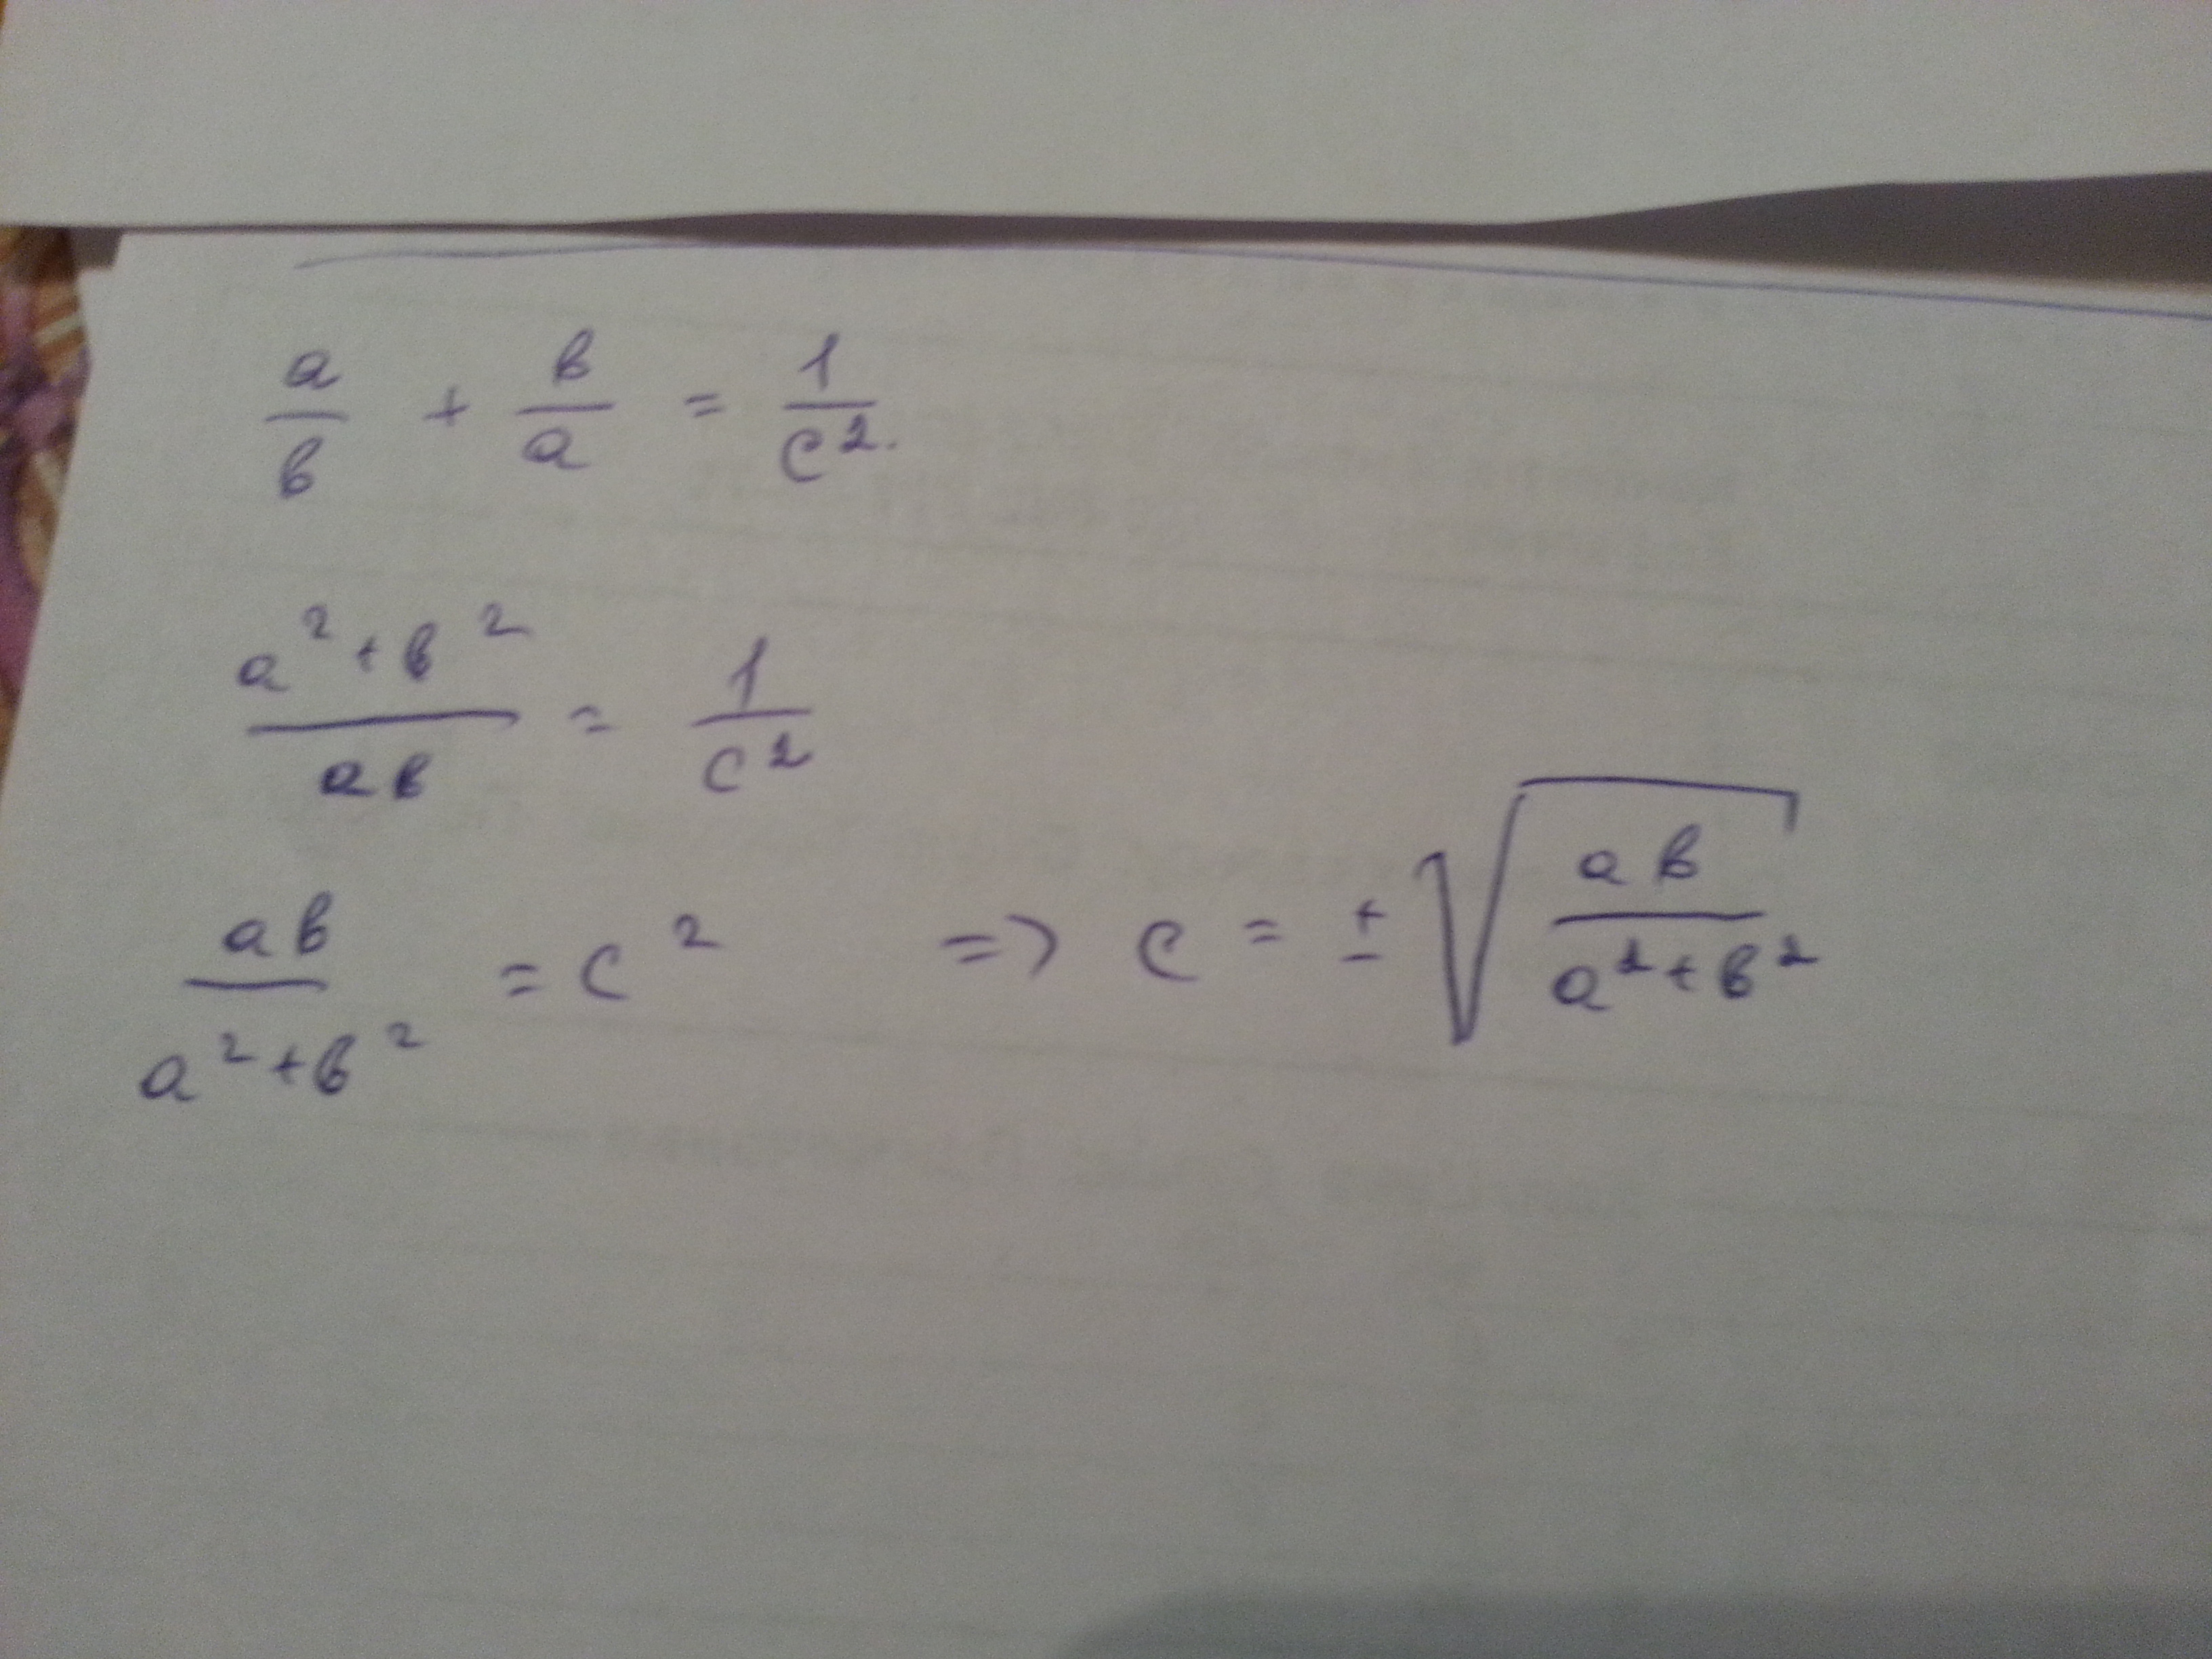 a/b + b/a = 1/c².
(a² + b²)/(ab) = 1/c²
ab/(a² + b²) = c² => c = ± √(ab/(a² + b²))